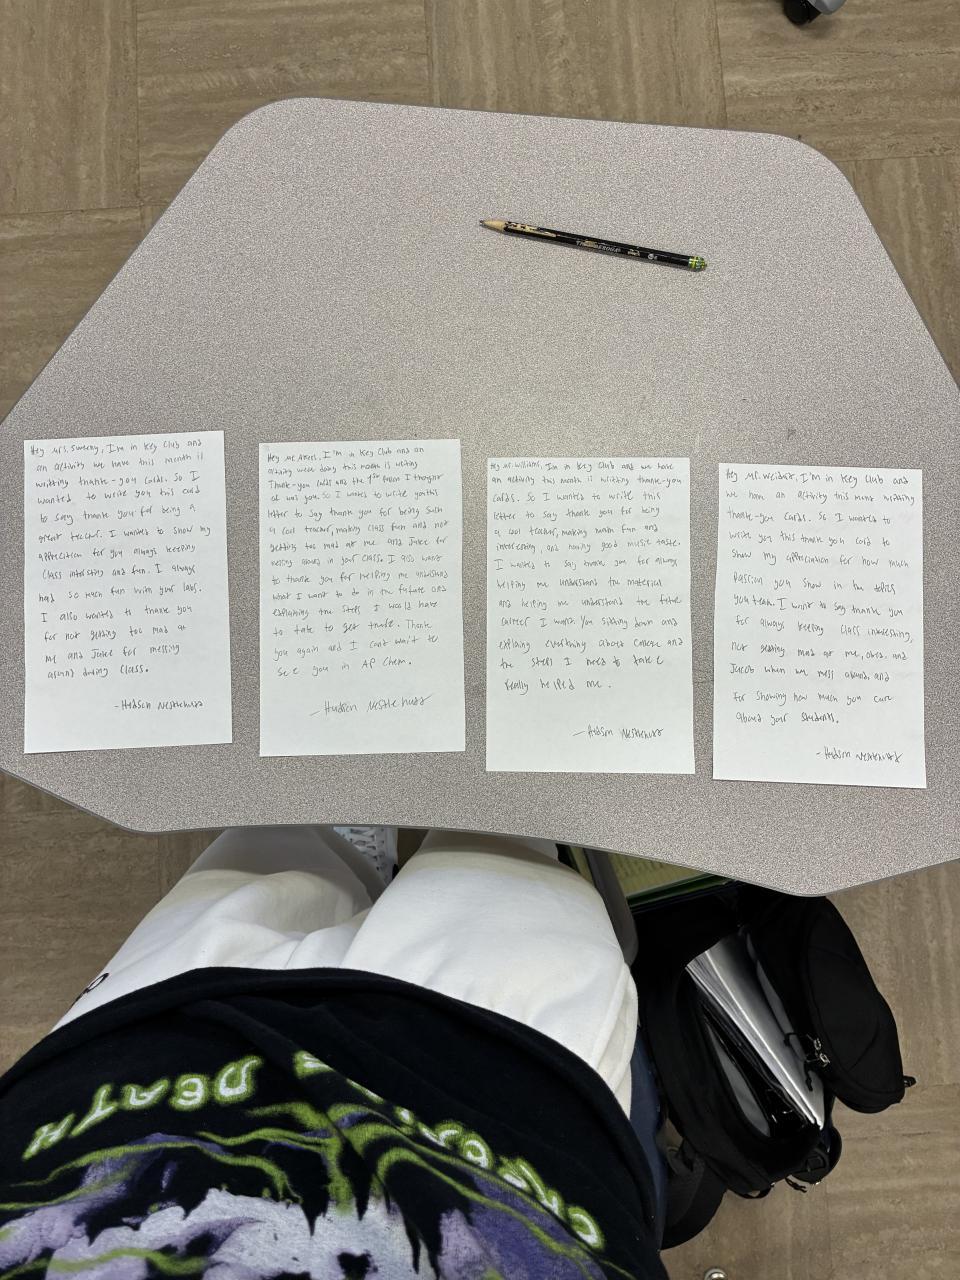 THUNDERBOLT
Hey Mrs. Sweeny, I'm in Key Club and
an activity we have this month is
writting thank-you cards. So I
wanted to write you this card
to say thank you for being a
great teacher. I wanted to show my
for you always keeping
class intersting and fun. I always
had so much fun with your labs.
I also wanted to thank you
for not getting too mad at
me and Jake for messing
around during class.
-Hudson
Hey Mr. I'm in Key Club and an
activity were doing this month is writing
Thank-you cards and the 1st person I thought
of was you. So I wanted to write you this
letter to say thank you for being such
a cool teacher, making class fun and not
getting too mad at me and Jake for
messing around in your class. I also want
to thank you for helping me understand
what I want to do in the future and
explaining the steps I would have
to take to get there. Thank
you again and I can't wait to
see you in AP Chem.
-Hudson
Hey Mr. Williams, I'm in Key Club and we have
an activity this month is writting thank-you
cards. So I wanted to write this
letter to say thank you for being
a cool teacher, making math fun and
interesting, and having good music taste.
I wanted to say thank you for always
helping me understand the material
and helping me understand the future
career I want. You sitting down and
explaing everything about college and
the steps I need to take
really helped me.
-Hudson
Hey Mr. I'm in Key Club and
we have an activity this month writting
thank-you cards. So I wanted to
write you this thank you card to
show my appreciation for how much
passion you show in the topics
you teach. I want to say thank you
for always keeping class interesting,
not getting mad at me, and
Jacob when we mess around, and
for showing how much you care
about your students.
-Hudson
DEATH